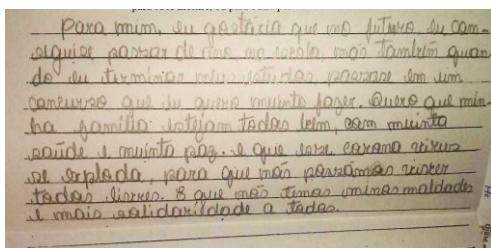 Para mim, eu gostaria que no futuro eu com-
seguise passar de ano na escola, mais também quan-
do eu terminar meus estudos, passase em um
concurso que eu quero muinto fazer. Quero que min-
ha família estejam todos bem, com muinta
saúde e muinto paz. e que esse corona virus
se exploda, para que nós possámos viver
todos livres. E que nós temos minos maldades
e mais solidariedade a todos.